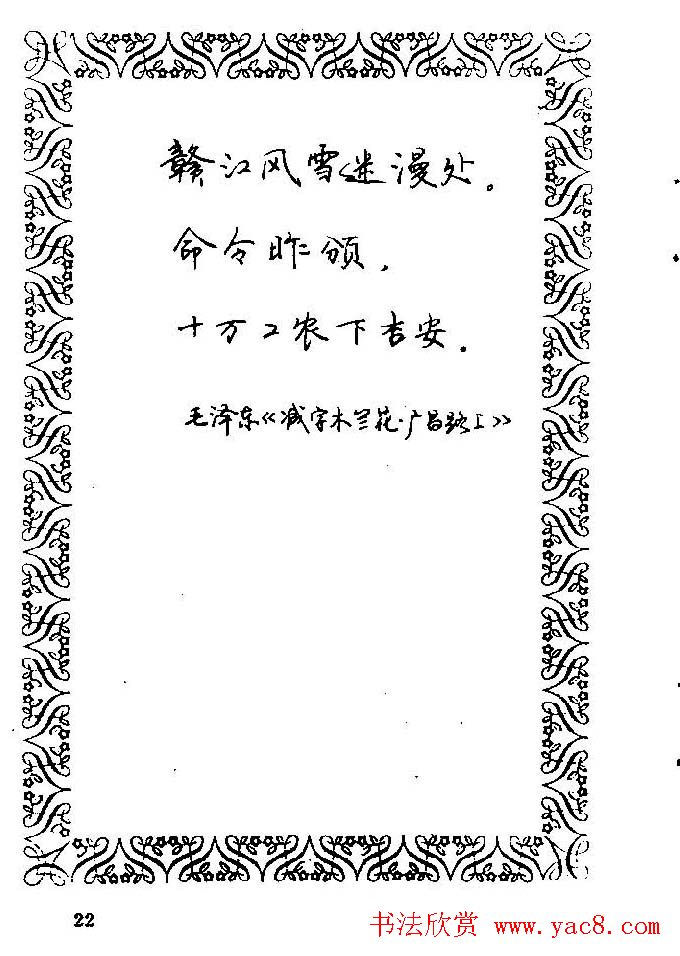 赣江风雪迷漫处。
命令昨颁，
十万工农下吉安。
毛泽东《减字木兰花·广昌路上》
22
书法欣赏 www.yac8.com